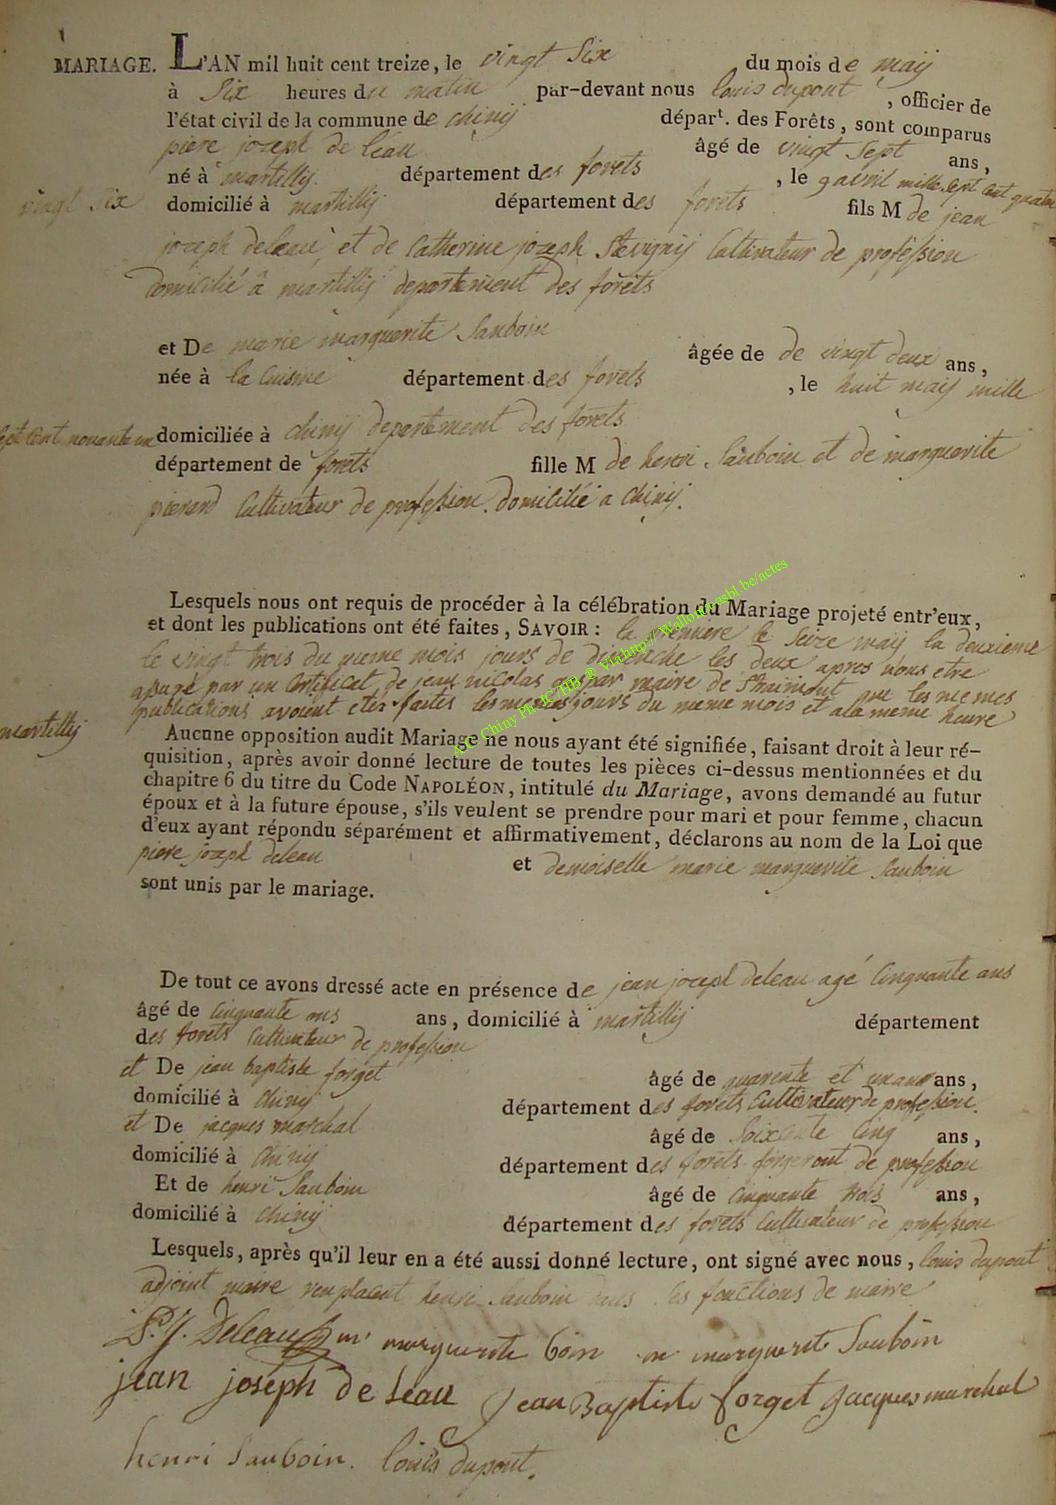 MARIAGE. L'AN mil huit cent treize, le vingt six du mois de maÿ
à Six heures du matin par-devant nous louis dupont, officier de
l'état civil de la commune de chinÿ départ. des Forêts, sont comparus
piere jozeph de léau âgé de vingt sept ans,
né à martillÿ département des forets, le 9 avril mille sept cent quatre
vingt Six domicilié à martillÿ département des forets fils M de jean
jozeph deleau et de Catherine jozeph Cultivateur de profession
domicilié à martillÿ departement des forets
et De marie marguerite Sauboin âgée de de vingt deux ans,
née à la Cuisine département des forets, le huit maÿ mille
sept cent nonante un domiciliée à chinÿ departement des forets
département de forets fille M de henri Sauboin et de marguerite
pierard Cultivateur de profession domiciliée a Chinÿ.
Lesquels nous ont requis de procéder à la célébration du Mariage projeté entr'eux,
et dont les publications ont été faites, SAVOIR : la premiere le Seize maÿ la deuxieme
le vingt trois du meme mois jours de dimenche les deux apres nous etre
assuré par un Certificat de jean nicolas maire de Straimont que les memes
publications avoient etez faites les memes jours du meme mois et a la meme heure
martillÿ
Aucune opposition audit Mariage ne nous ayant été signifiée, faisant droit à leur ré-
quisition, après avoir donné lecture de toutes les pièces ci-dessus mentionnées et du
chapitre 6 du titre du Code NAPOLÉON, intitulé du Mariage, avons demandé au futur
époux et à la future épouse, s'ils veulent se prendre pour mari et pour femme, chacun
d'eux ayant répondu séparément et affirmativement, déclarons au nom de la Loi que
piere jozeph deleau et demoiselle marie marguerite Sauboin
sont unis par le mariage.
De tout ce avons dressé acte en présence de jean jozeph deleau agé Cinquante ans
âgé de Cinquante ans ans, domicilié à martillÿ département
des forets Cultivateur de profession
et De jean baptiste forget âgé de quarente et ans,
domicilié à Chinÿ département des forets Cultivateur de profession.
et De jacques marchal âgé de Soixante Cinq ans,
domicilié à Chinÿ département des forets forgeront de profession
Et de henri Sauboin âgé de Cinquante trois ans,
domicilié à Chinÿ département des forets Cultivateur de profession
Lesquels, après qu'il leur en a été aussi donné lecture, ont signé avec nous, louis dupont
adjoint maire remplacent henri Sauboin dans les fonctions de maire
P. J. Deleau m marguerite boin m marguerite Sauboin
jean joseph De Leau Jean Baptiste forget Jacques marchal
henri Sauboin. louis dupont.